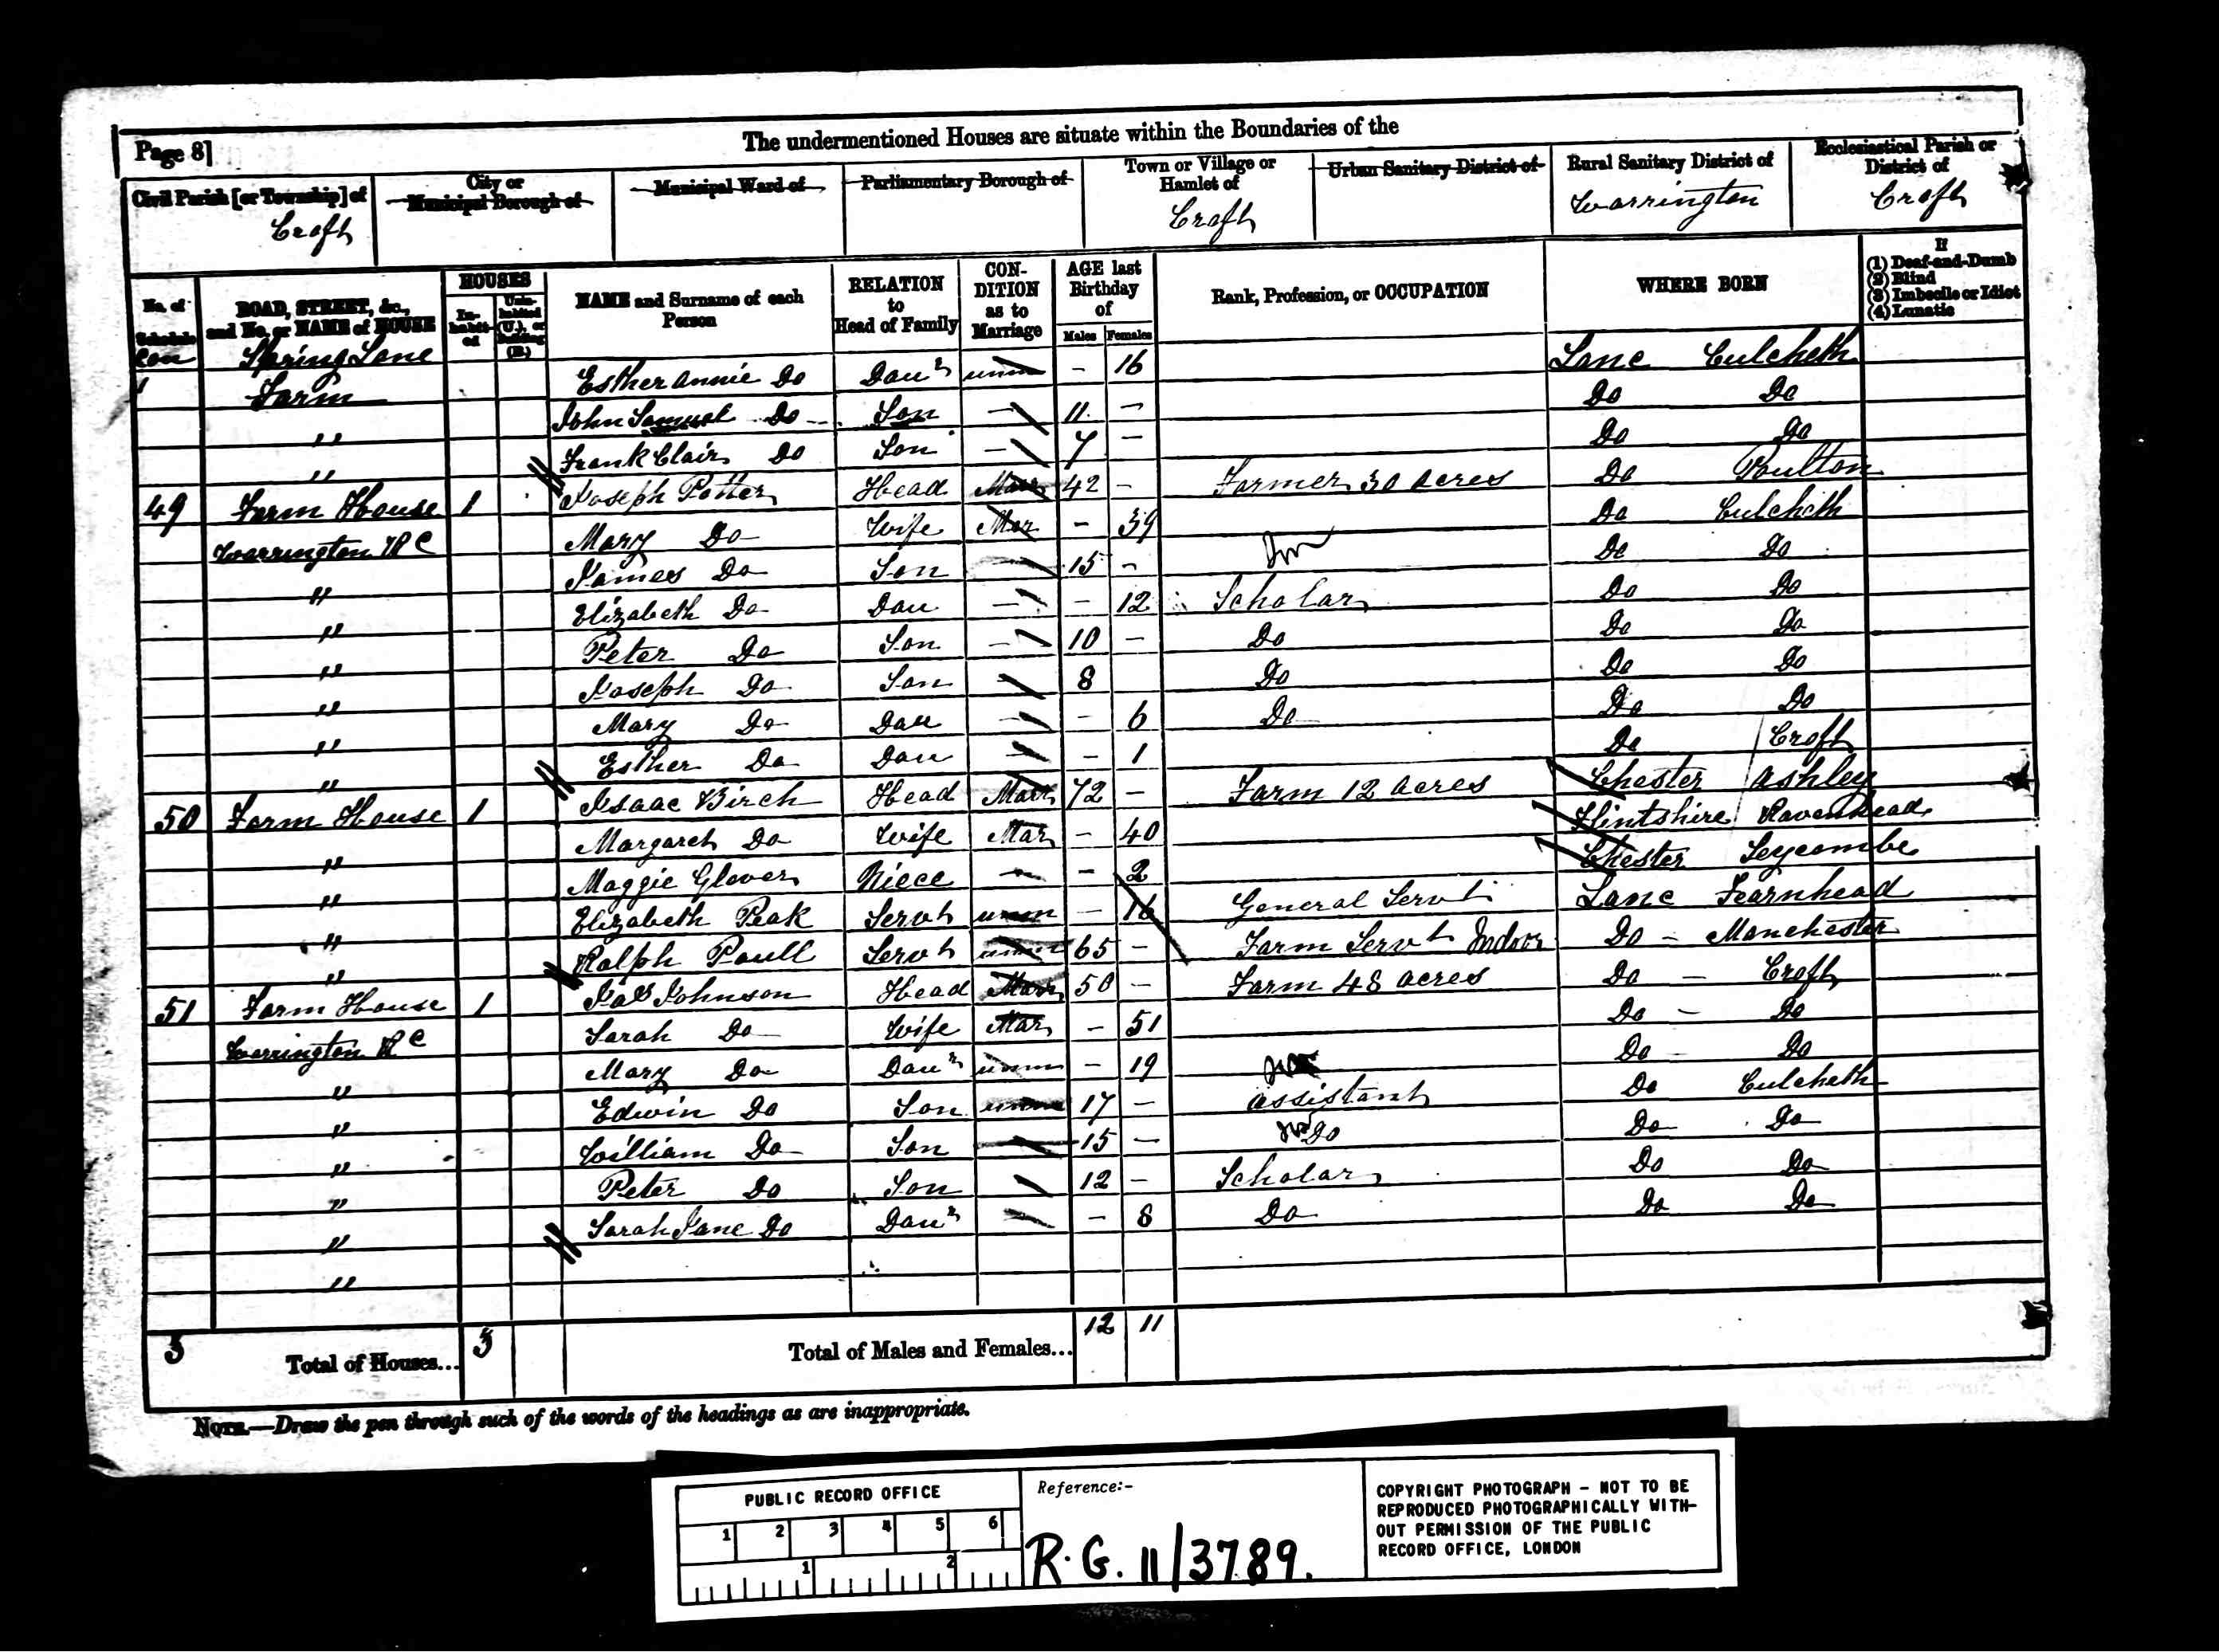 The undermentioned Houses are situate within the Boundaries of the
Page 8]
Civil Parish [or Township] of
Croft
City or
Municipal Borough of
Municipal Ward of
Parliamentary Borough of
Town or Village or
Hamlet of
Croft
Urban Sanitary District of
Rural Sanitary District of
Warrington
Ecclesiastical Parish or
District of
Croft
No. of
Schedule
ROAD, STREET, &c.,
and No. or NAME of HOUSE
HOUSES
In-
habit-
ed
Unin-
habited
(U.), or
Building
(B.)
NAME and Surname of each
Person
RELATION
to
Head of Family
CON-
DITION
as to
Marriage
AGE last
Birthday
of
Males Females
Rank, Profession, or OCCUPATION
WHERE BORN
If
(1) Deaf-and-Dumb
(2) Blind
(3) Imbecile or Idiot
(4) Lunatic
Con Spring Lane Esther Annie Do Daur unm - 16 Lanc Culcheth
Farm John Samuel Do Son - 11 - Do Do
" Frank Clair Do Son - 7 - Do Do
" Joseph Potter Head Mar 42 - Farmer 30 acres Do Poulton
49 Farm House 1 Mary Do Wife Mar - 39 Do Culcheth
Warrington Rd James Do Son - 15 - Do Do
" Elizabeth Do Dau - - 12 Scholar Do Do
" Peter Do Son - 10 - Do Do Do
" Joseph Do Son 8 Do Do Do
" Mary Do Dau - - 6 Do Do Do
" Esther Do Dau - - 1 Do Croft
" Isaac Birch Head Mar 72 - Farm 12 acres Chester Ashley
50 Farm House 1 Margaret Do Wife Mar - 40 Flintshire
" Maggie Glover Niece - - 2 Chester
" Elizabeth Peak Servt unm - 16 General Servt Lanc Fearnhead
" Ralph Poull Servt unm 65 - Farm Servt Indoor Do - Manchester
" Jas Johnson Head Mar 50 - Farm 48 acres Do - Croft
51 Farm House 1 Sarah Do Wife Mar - 51 Do - Do
Warrington Rd Mary Do Daur unm - 19 Do - Do
" Edwin Do Son unm 17 - assistant Do Culcheth
" William Do Son 15 - Do Do Do
" Peter Do Son 12 - Scholar Do Do
" Sarah Jane Do Daur - - 8 Do Do Do
"
"
3 Total of Houses... 3 Total of Males and Females... 12 11
NOTE.—Draw the pen through such of the words of the headings as are inappropriate.
PUBLIC RECORD OFFICE
1 2 3 4 5 6
1 2
Reference:-
R.G. 11/3789.
COPYRIGHT PHOTOGRAPH - NOT TO BE
REPRODUCED PHOTOGRAPHICALLY WITH-
OUT PERMISSION OF THE PUBLIC
RECORD OFFICE, LONDON